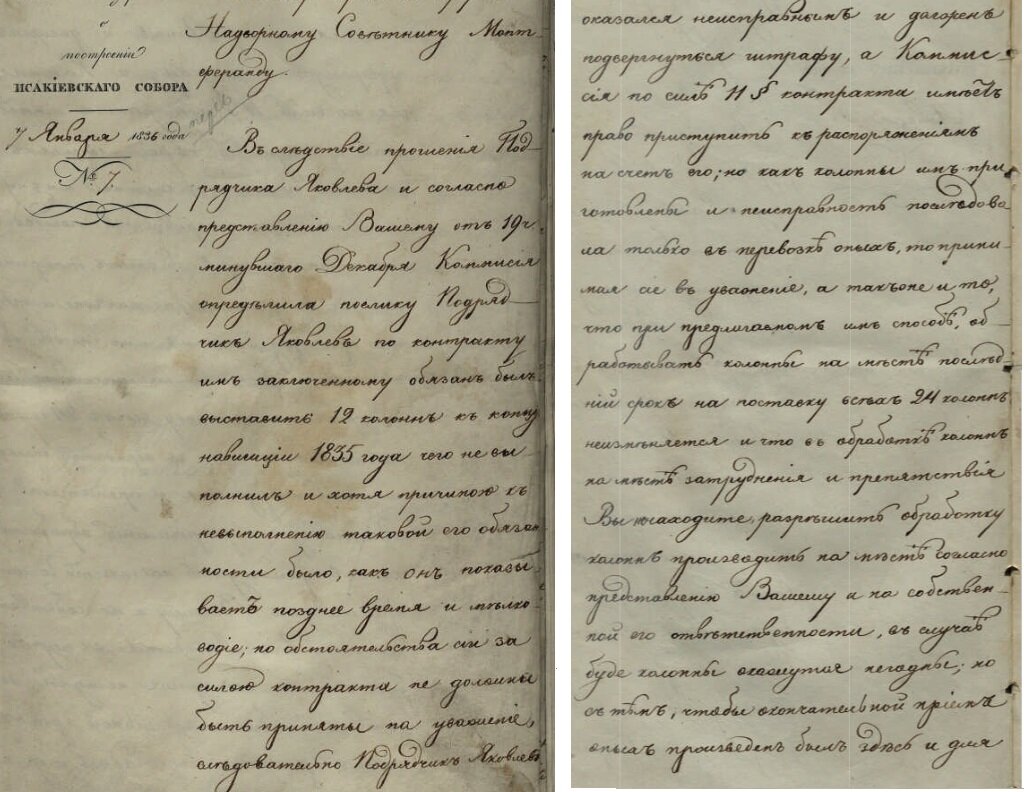 о
построении
ИСАКІЕВСКАГО СОБОРА
7 Января 1836 года
№ 7.
Надворному Совѣтнику Монт-
феранду.
Въ слѣдствіе прошенія Под-
рядчика Яковлева и согласно
представленію Вашему отъ 19 ч.
минувшаго Декабря Коммисія
опредѣлила поелику Подряд-
чикъ Яковлевъ по контракту
имъ заключенному обязанъ былъ
выставить 12 колоннъ къ концу
навигаціи 1835 года чего не вы
полнилъ и хотя причиною къ
невыполненію таковой его обязан
ности было, какъ онъ показы
ваетъ позднее время и мѣлко-
водіе; но обстоятельства сіи за
силою контракта не должны
быть приняты на уваженіе,
слѣдовательно Подрядчикъ Яковлевъ
оказался неисправнымъ и долженъ
подвергнуться штрафу, а Коммис-
сія по силѣ 11 § контракта имѣетъ
право приступить къ распоряженіямъ
на счетъ его; но какъ колонны имъ при
готовлены и неисправность послѣдова
ла только въ перевозкѣ оныхъ, то прини-
мая сіе въ уваженіе, а также и то,
что при предлагаемомъ имъ способѣ, об-
работывать колонны на мѣстѣ послѣд-
ній срокъ на поставку всѣхъ 24 колоннъ
неизмѣняется и что въ обработкѣ колоннъ
на мѣстѣ затрудненія и препятствія
Вы ненаходите, разрѣшить обработку
колоннъ производить на мѣстѣ согласно
представленію Вашему и на собствен-
ной его отвѣтственности, въ случаѣ
буде колонны окажутся негодны; но
съ тѣмъ, чтобы окончательной пріемъ
оныхъ произведенъ былъ здѣсь и для